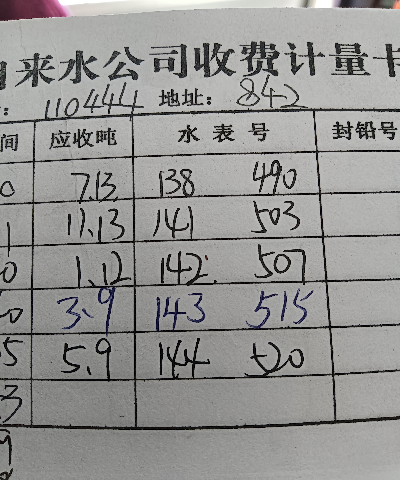 自来水公司收费计量卡
: 110444 地址: 842
间 应收吨 水表号 封铅号
0 7.13 138 490
1 11.13 141 503
0 1.12 142 507
20 3.9 143 515
5 5.9 144 520
3
9